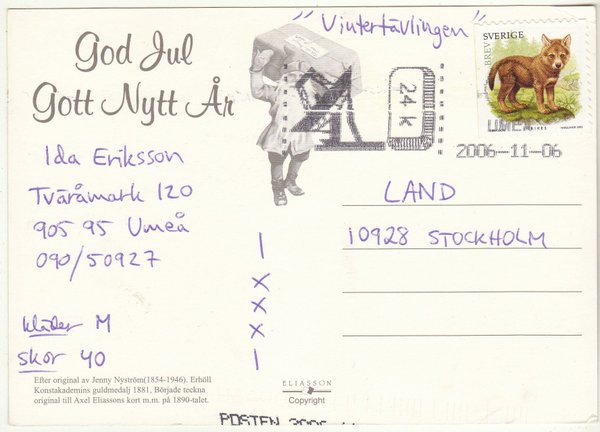 "Vintertävlingen"
God Jul
Gott Nytt År
BREV SVERIGE
24 k
UME
2006-11-06
Ida Eriksson
Tväråmark 120
905 95 Umeå
090/50927
LAND
10928 STOCKHOLM
1
X
X
X
1
kläder M
skor 40
Efter original av Jenny Nyström(1854-1946). Erhöll
Konstakademins guldmedalj 1881, Började teckna
original till Axel Eliassons kort m.m. på 1890-talet.
ELIASSON
Copyright
POSTEN 2006